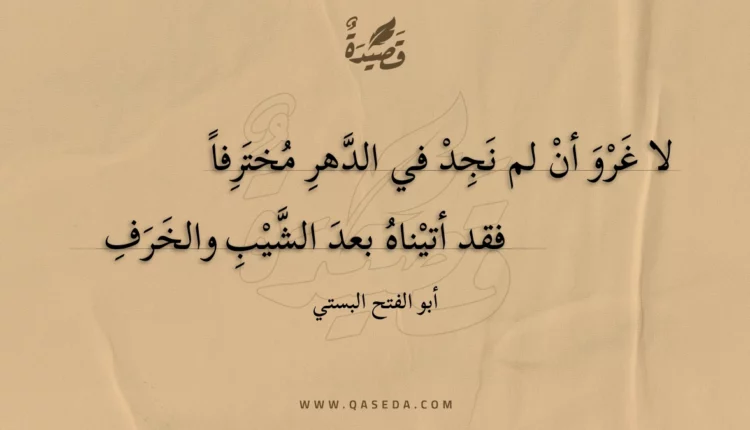 قَصِيدَةٌ
لا غَرْوَ أنْ لم نَجِدْ في الدَّهرِ مُختَرِفاً
فقد أتيْناهُ بعدَ الشَّيْبِ والخَرَفِ
أبو الفتح البستي
WWW.QASEDA.COM